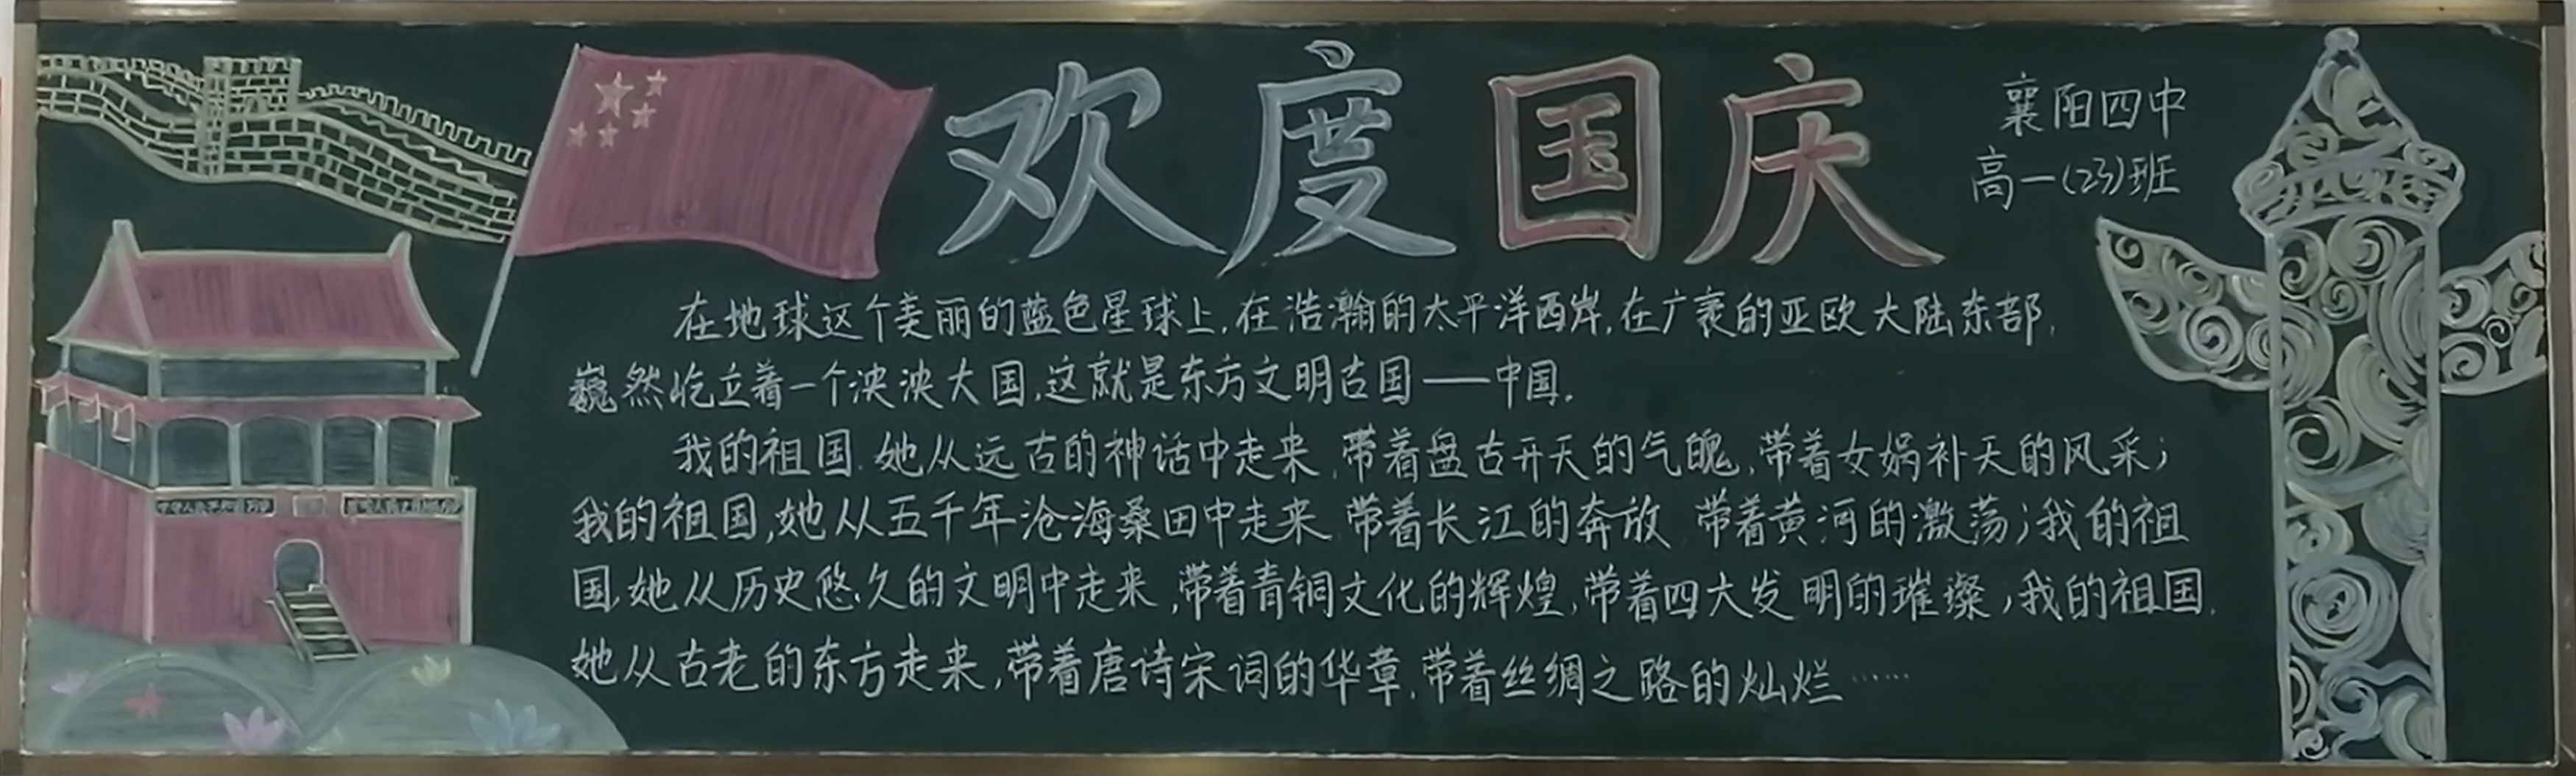 欢度国庆
襄阳四中
高一(23)班
在地球这个美丽的蓝色星球上,在浩瀚的太平洋西岸,在广袤的亚欧大陆东部,
巍然屹立着一个泱泱大国,这就是东方文明古国——中国。
我的祖国,她从远古的神话中走来,带着盘古开天的气魄,带着女娲补天的风采;
我的祖国,她从五千年沧海桑田中走来,带着长江的奔放,带着黄河的激荡;我的祖
国,她从历史悠久的文明中走来,带着青铜文化的辉煌,带着四大发明的璀璨;我的祖国,
她从古老的东方走来,带着唐诗宋词的华章,带着丝绸之路的灿烂……